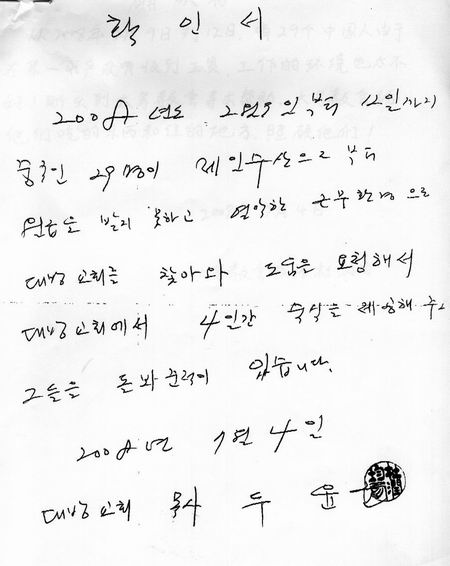 확인서
2008년도 2월9일부터 12일까지
중국인 29명이 제일수산으로 부터
월급을 받지 못하고 열악한 근무환경으로
대방교회를 찾아와 도움을 요청해서
대방교회에서 4일간 숙식을 제공해 주고
그들을 돌봐준적이 있습니다.
2008년 7월 4일
대방교회 목사 두 윤